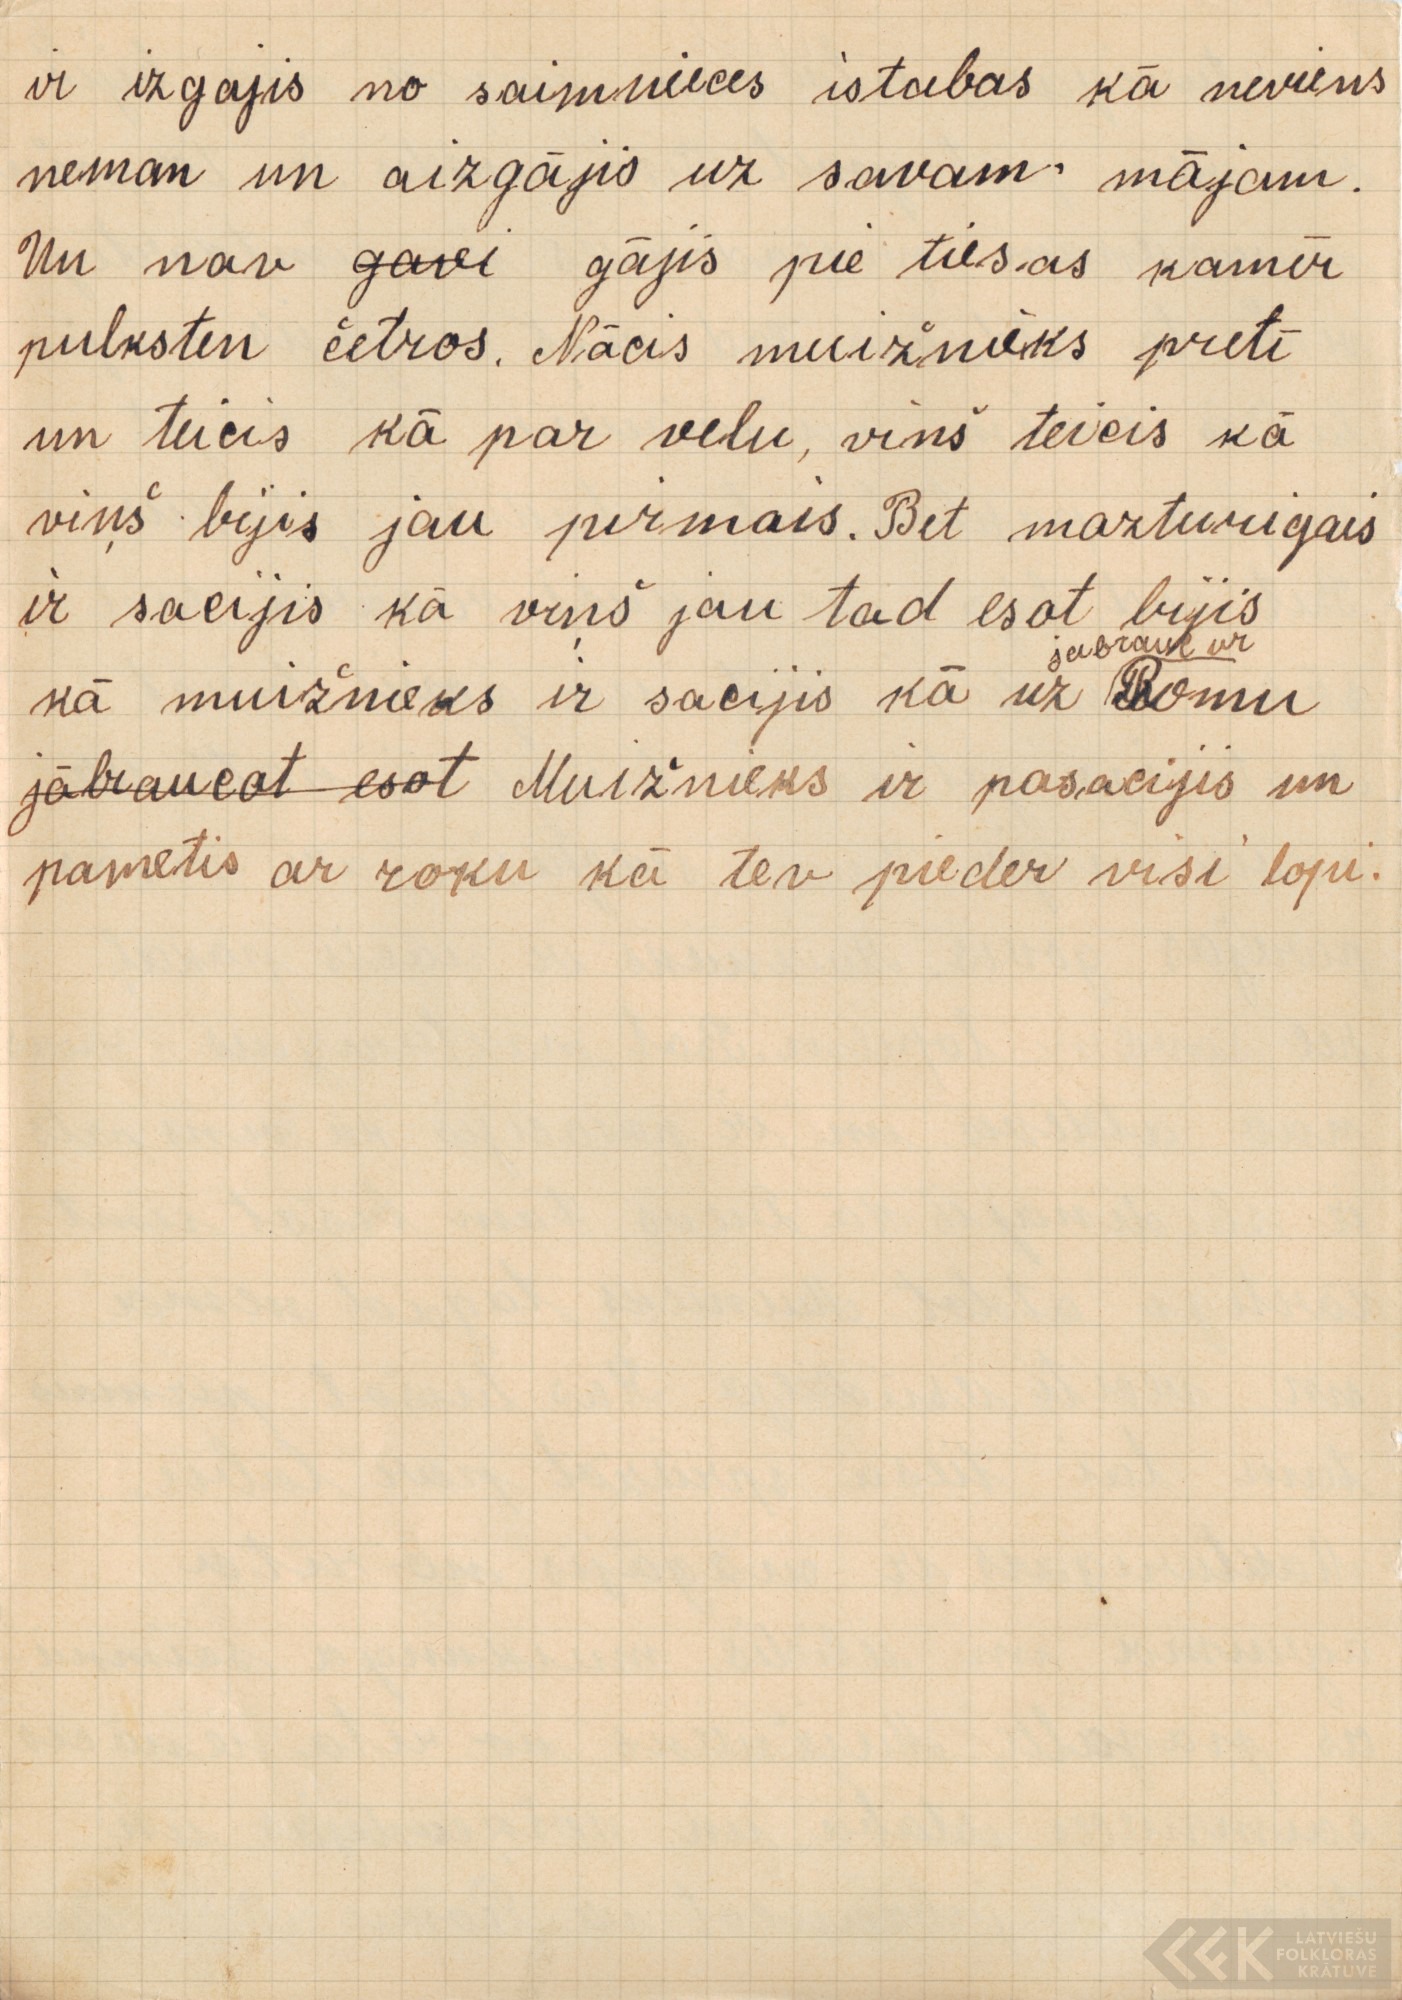 ir izgajis no saimnieces istabas kā neviens
neman un aizgājis uz savam mājam.
Un nav gavi gājis pie tiesas kamēr
pulksten četros. Nācis muižnieks pretī
un teicis kā par velu, vinš teicis kā
viņš bijis jau pirmais. Bet mazturigais
ir sacijis kā viņš jau tad esot bijis
jabrauc ar
kā muižnieks ir sacijis kā uz Romu
jābraucot esot Muižnieks ir pasacijis un
pametis ar roku kā tev pieder visi lopi.
LATVIEŠU
FOLKLORAS
KRĀTUVE